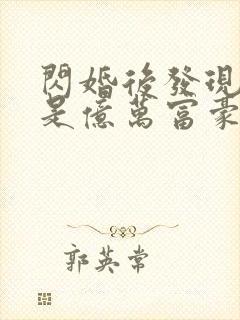 閃婚後發現
是億萬富豪
郭英常